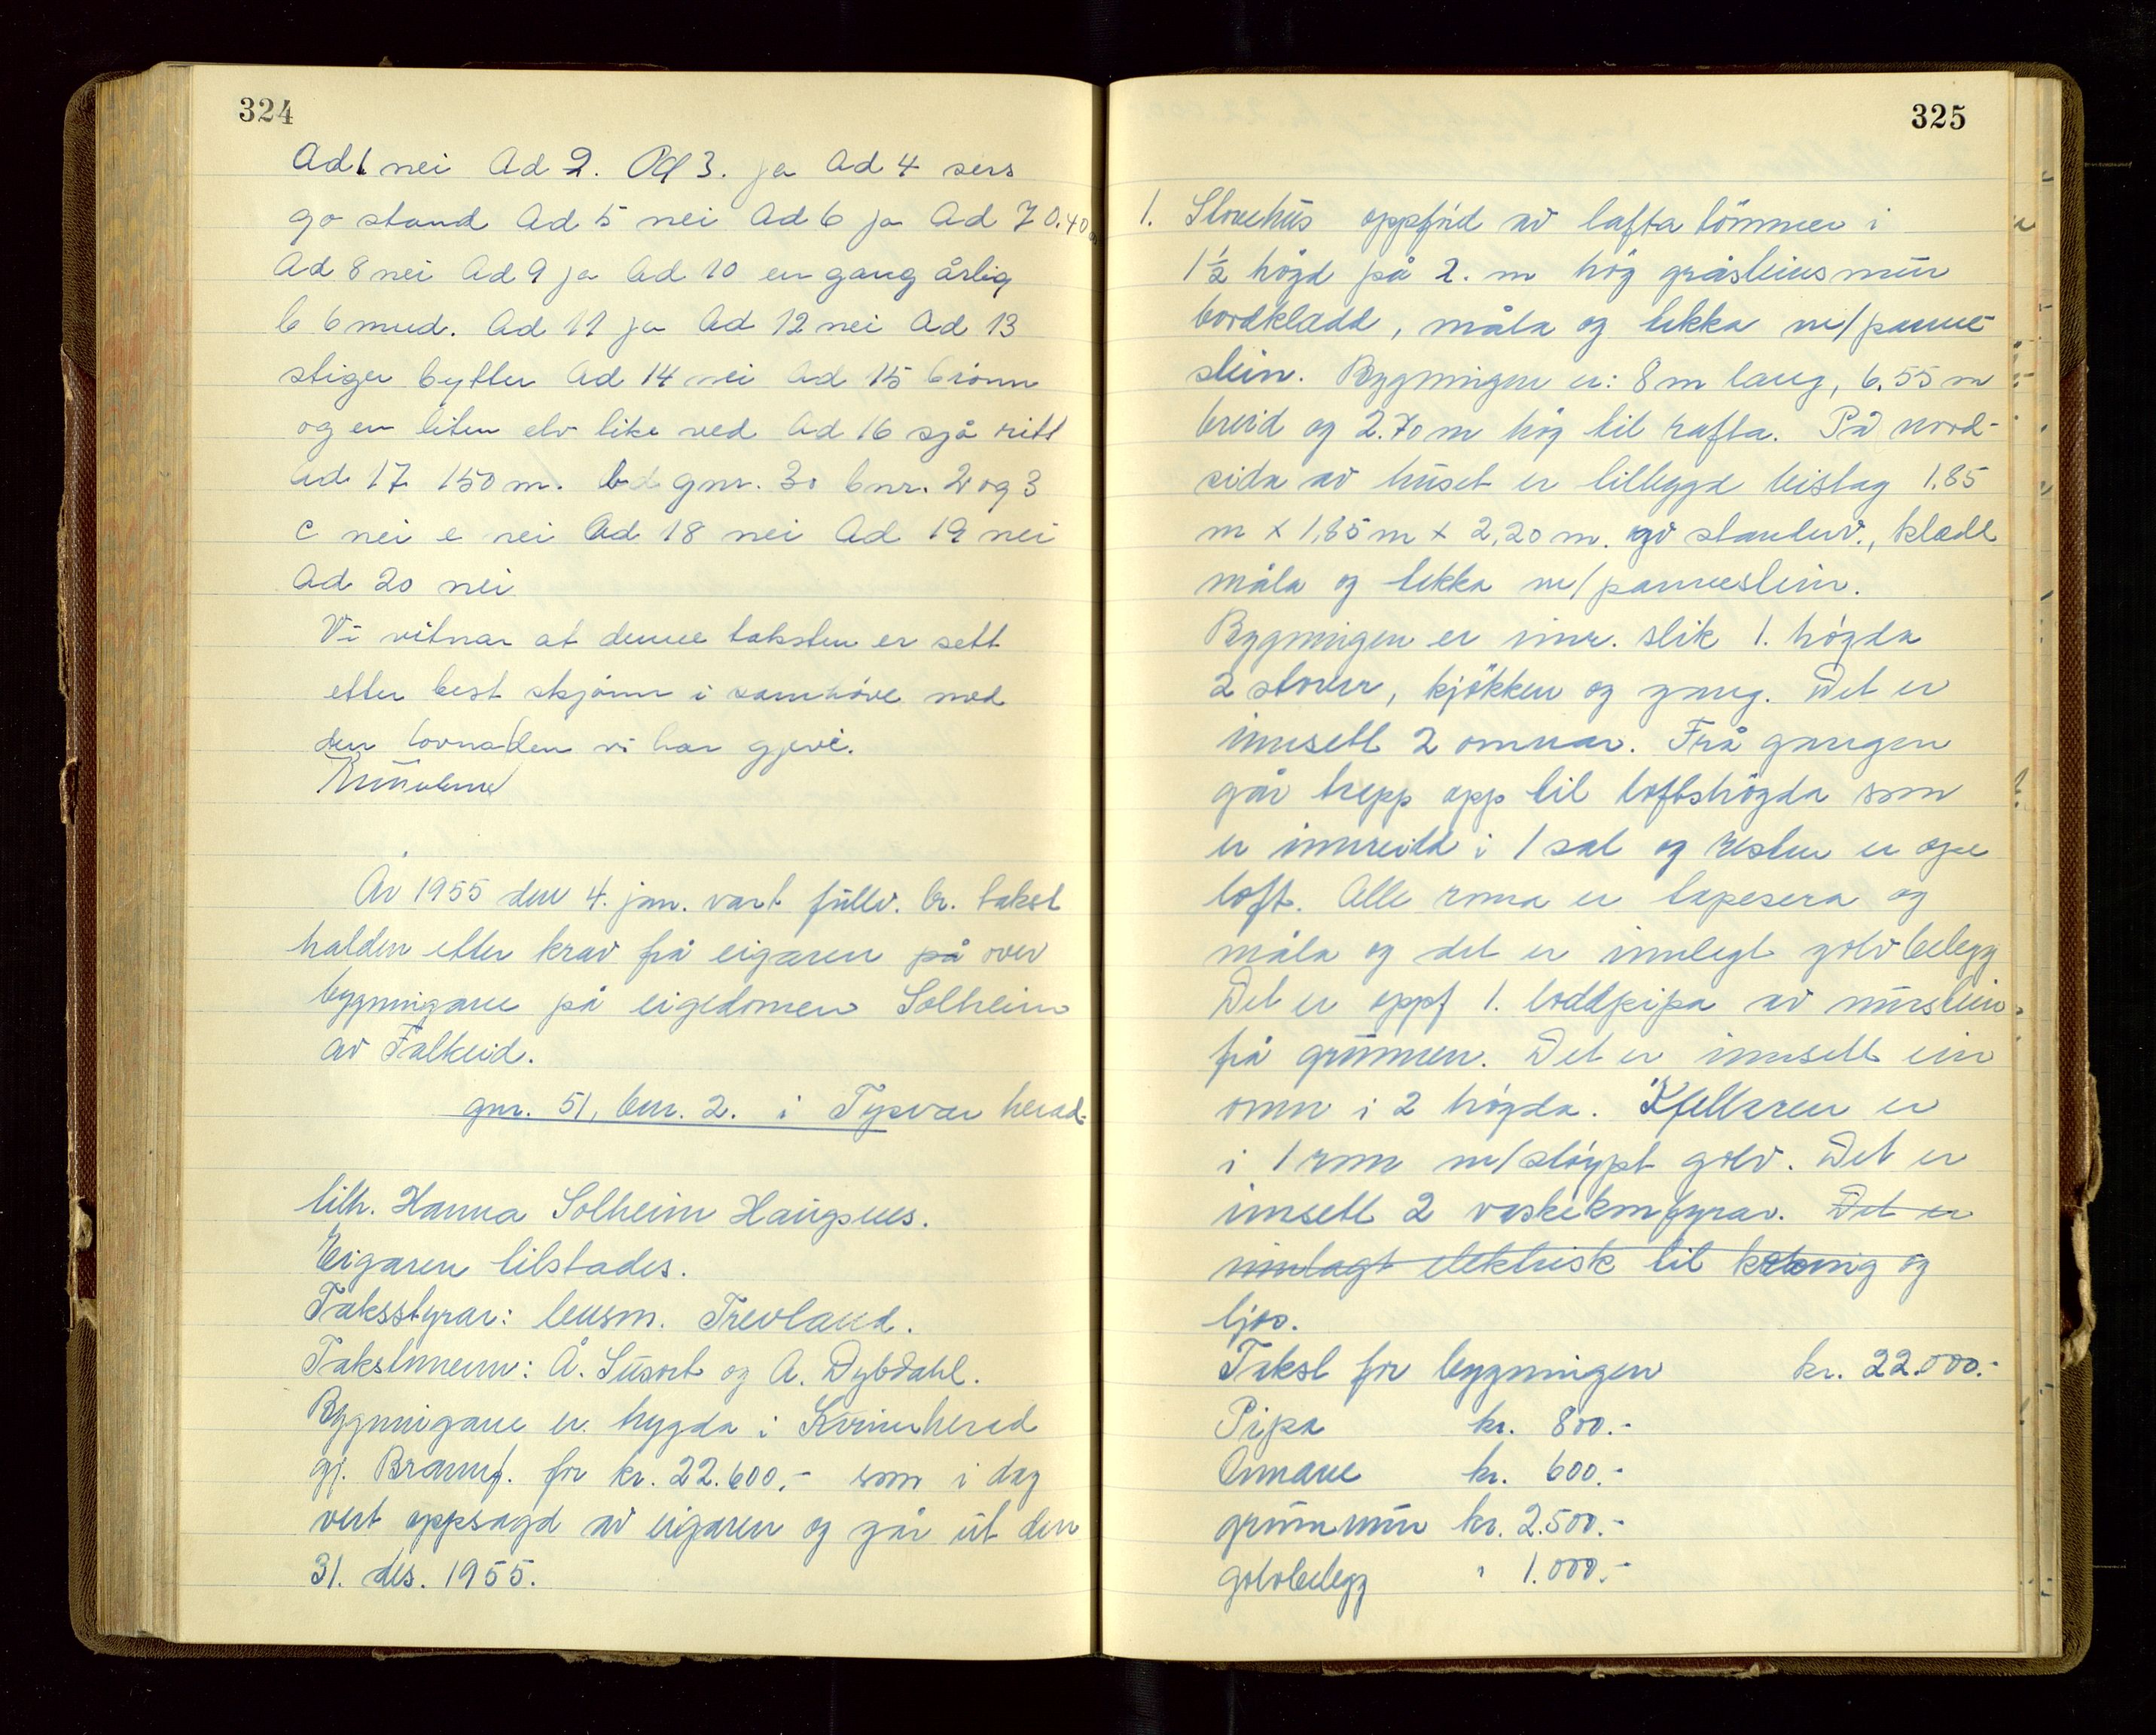 324
Ad 1 nei Ad 2. Ad 3. ja Ad 4 sers
go stand Ad 5 nei Ad 6 ja Ad 7 0.40
Ad 8 nei Ad 9 ja Ad 10 en gang årlig
b 6 mnd. Ad 11 ja Ad 12 nei Ad 13
stiger bytter Ad 14 nei Ad 15 brønn
og en liten elv like ved Ad 16 sjå ritt
Ad 17 150 m. bd gnr. 30 bnr. 2 og 3
c nei e nei Ad 18 nei Ad 19 nei
Ad 20 nei
Vi vitnar at denne taksten er sett
etter best skjønn i samhøve med
den lovnaden vi har gjeve.
År 1955 den 4. jan. vart fullv. br. takst
halden etter krav frå eigaren på over
bygningane på eigedomen Solheim
av Falkeid.
gnr. 51, bnr. 2. i Tysvær herad
tilh. Hanna Solheim Haugsnes.
Eigaren tilstades.
Taksstyrar: lensm. Trevland.
Takstmenn: Å. Susort og A. Dybdahl.
Bygningane er trygda i Kvinnherad
gj. Brannf. for kr. 22.600,- som i dag
vert oppsagd av eigaren og går ut den
31. des. 1955.
325
1. Stovehus oppförd av lafta tömmer i
1½ högd på 2. m hög gråsteinsmur
bordkledd, måla og tekka m/panne-
stein. Bygningen er: 8 m lang, 6.55 m
breid og 2.70 m hög til rafta. På nord-
sida av huset er tilbygd bislag 1.85
m x 1,85 m x 2,20 m. av stenderv., kledt
måla og tekka m/pannestein.
Bygningen er innr. slik 1. högda
2 stover, kjökken og gang. Det er
innsett 2 omnar. Frå gangen
går trepp opp til loftshögda som
er innreidd i 1 sal og resten er ope
loft. Alle roma er tapesera og
måla og det er innlegt golvbelegg
Det er oppf 1. loddpipa av murstein
frå grunnen. Det er innsett ein
omn i 2 högda. Kjellaren er
i 1 rom m/støypt golv. Det er
innsett 2 vaskekomfyrar. Det er
innlagt elektrisk til koking og
ljos.
Takst for bygningen kr. 22.000.-
Pipa kr. 800.-
Omnane kr. 600.-
grunnmur kr. 2.500.-
golvbelegg " 1.000.-